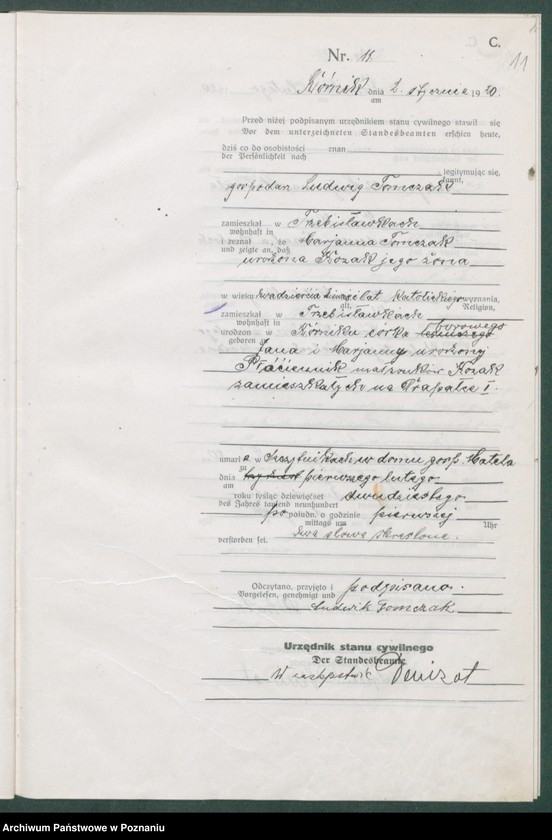 C.
11
Nr. 11
Kórnik dnia 2. stycznia 1920.
am
Przed niżej podpisanym urzędnikiem stanu cywilnego stawił się
Vor dem unterzeichneten Standesbeamten erschien heute,
dziś co do osobistości znan
der Persönlichkeit nach
legitymując się,
kannt,
gospodarz Ludwig Tomczak
zamieszkał w Trzebisławkach
wohnhaft in
i zeznał, że Marjanna Tomczak
und zeigte an, daß
urodzona Kozak jego żona
w wieku lat katolickiego wyznania,
alt, Religion,
zamieszkał w Trzebisławkach
wohnhaft in
borowego
urodzon w Kórniku córka
geboren zu
Jana i Marjanny urodzonej
Płóciennik małżonków Kozak
zamieszkałych na Prapałce I.
umarła w Szczytnikach w domu gosp. Matela
zu
dnia pierwszego lutego
am
roku tysiąc dziewięćset dwudziestego
des Jahres tausend neunhundert
po połudn. o godzinie pierwszej
mittags um Uhr
dwa słowa skreślone.
verstorben sei.
Odczytano, przyjęto i podpisano.
Vorgelesen, genehmigt und
Ludwik Tomczak
Urzędnik stanu cywilnego
Der Standesbeamte
W zastępstwie
Archiwum Państwowe w Poznaniu